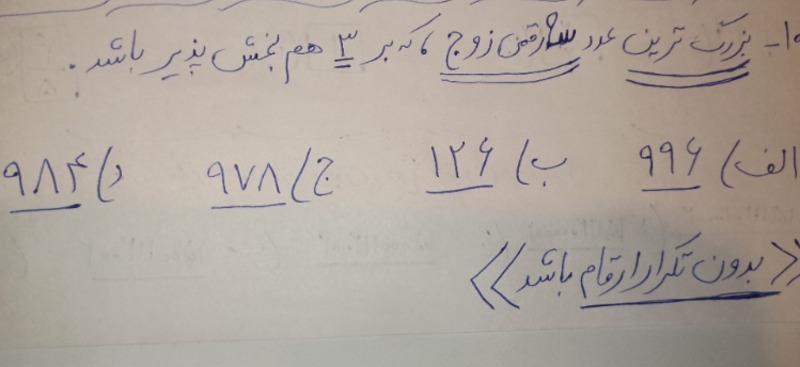 ۱۰- بزرگ ترین عدد سه رقمی زوج ، که بر ۳ هم بخش پذیر باشد .
الف) ۹۹۶ ب) ۱۲۶ ج) ۹۷۸ د) ۹۸۴
<<بدون تکرار ارقام باشد>>